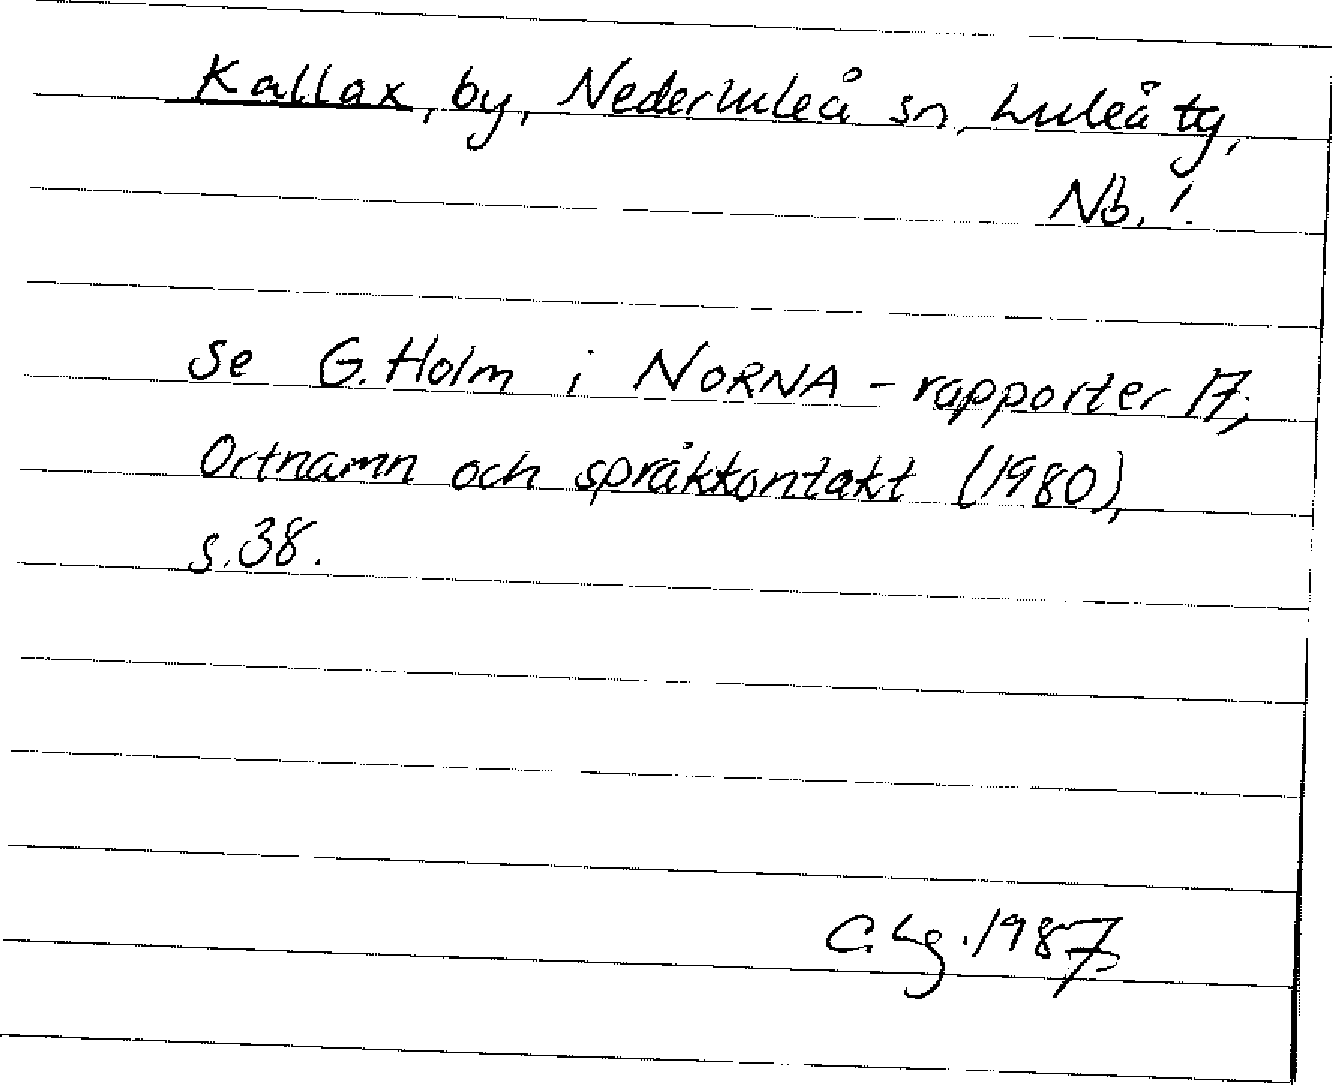 Kallax, by, Nederluleå sn, Luleå tg,
Nb.
Se G. Holm i NORNA-rapporter 17,
Ortnamn och språkkontakt (1980),
s. 38.
C. Lg. 1987